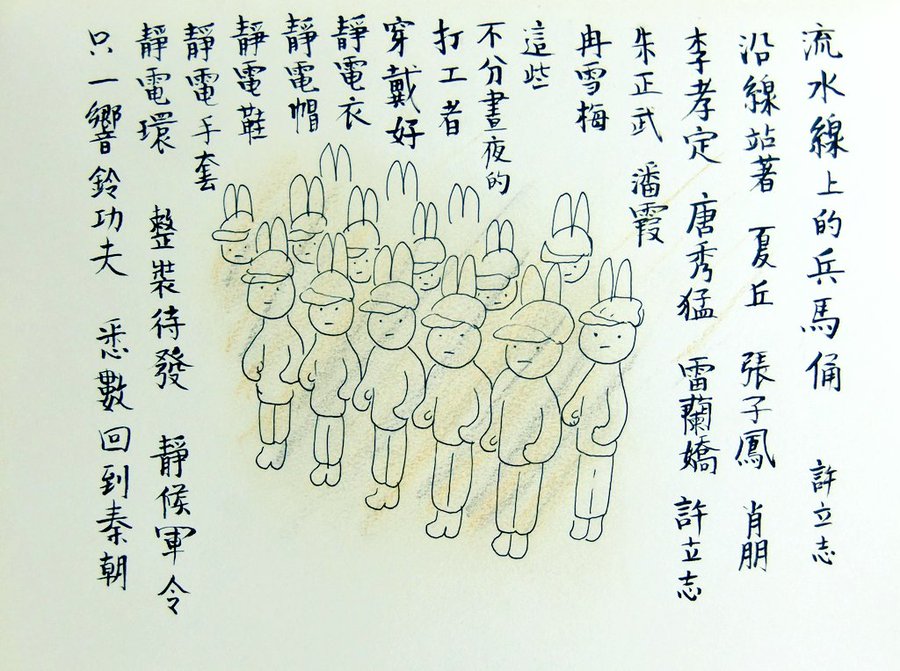 流水線上的兵馬俑 許立志
沿線站著 夏丘 張子鳳 肖朋
李孝定 唐秀猛 雷蘭嬌 許立志
朱正武 潘霞
冉雪梅
這些
不分晝夜的
打工者
穿戴好
靜電衣
靜電帽
靜電鞋
靜電手套
靜電環 整裝待發 靜候軍令
只一響鈴功夫 悉數回到秦朝